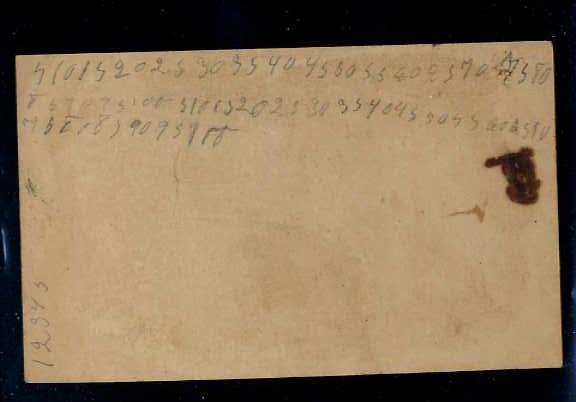 5 10 15 20 25 30 35 40 45 50 55 60 65 70 75 80
85 90 95 100 5 10 15 20 25 30 35 40 45 50 55 60 65 70
75 80 85 90 95 100
12345